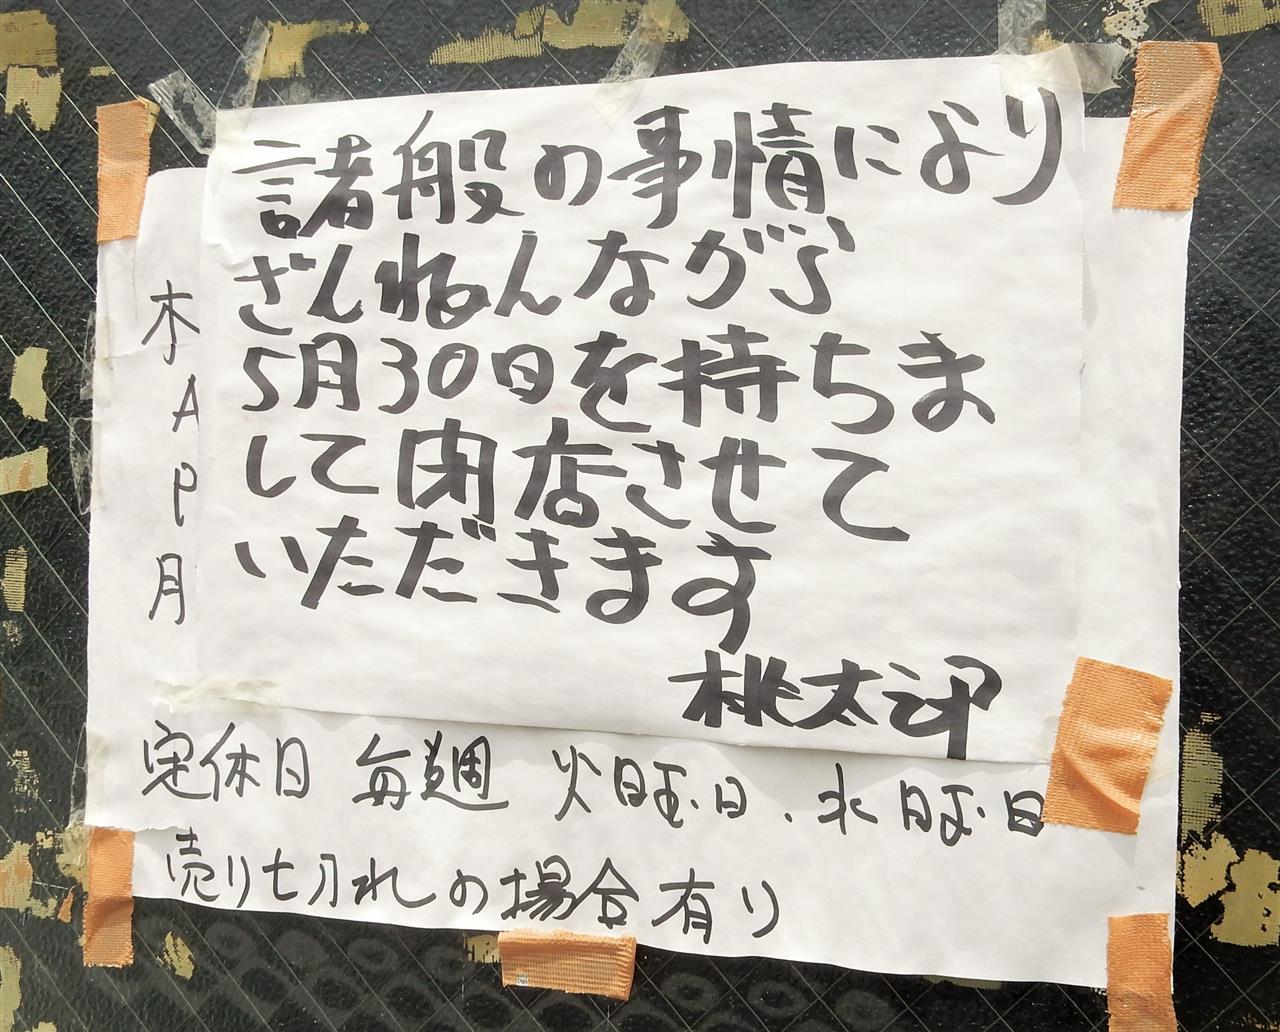 諸般の事情により
ざんねんながら
5月30日を持ちま
して閉店させて
いただきます
桃太郎
定休日 毎週 火曜日、水曜日
売り切れの場合有り